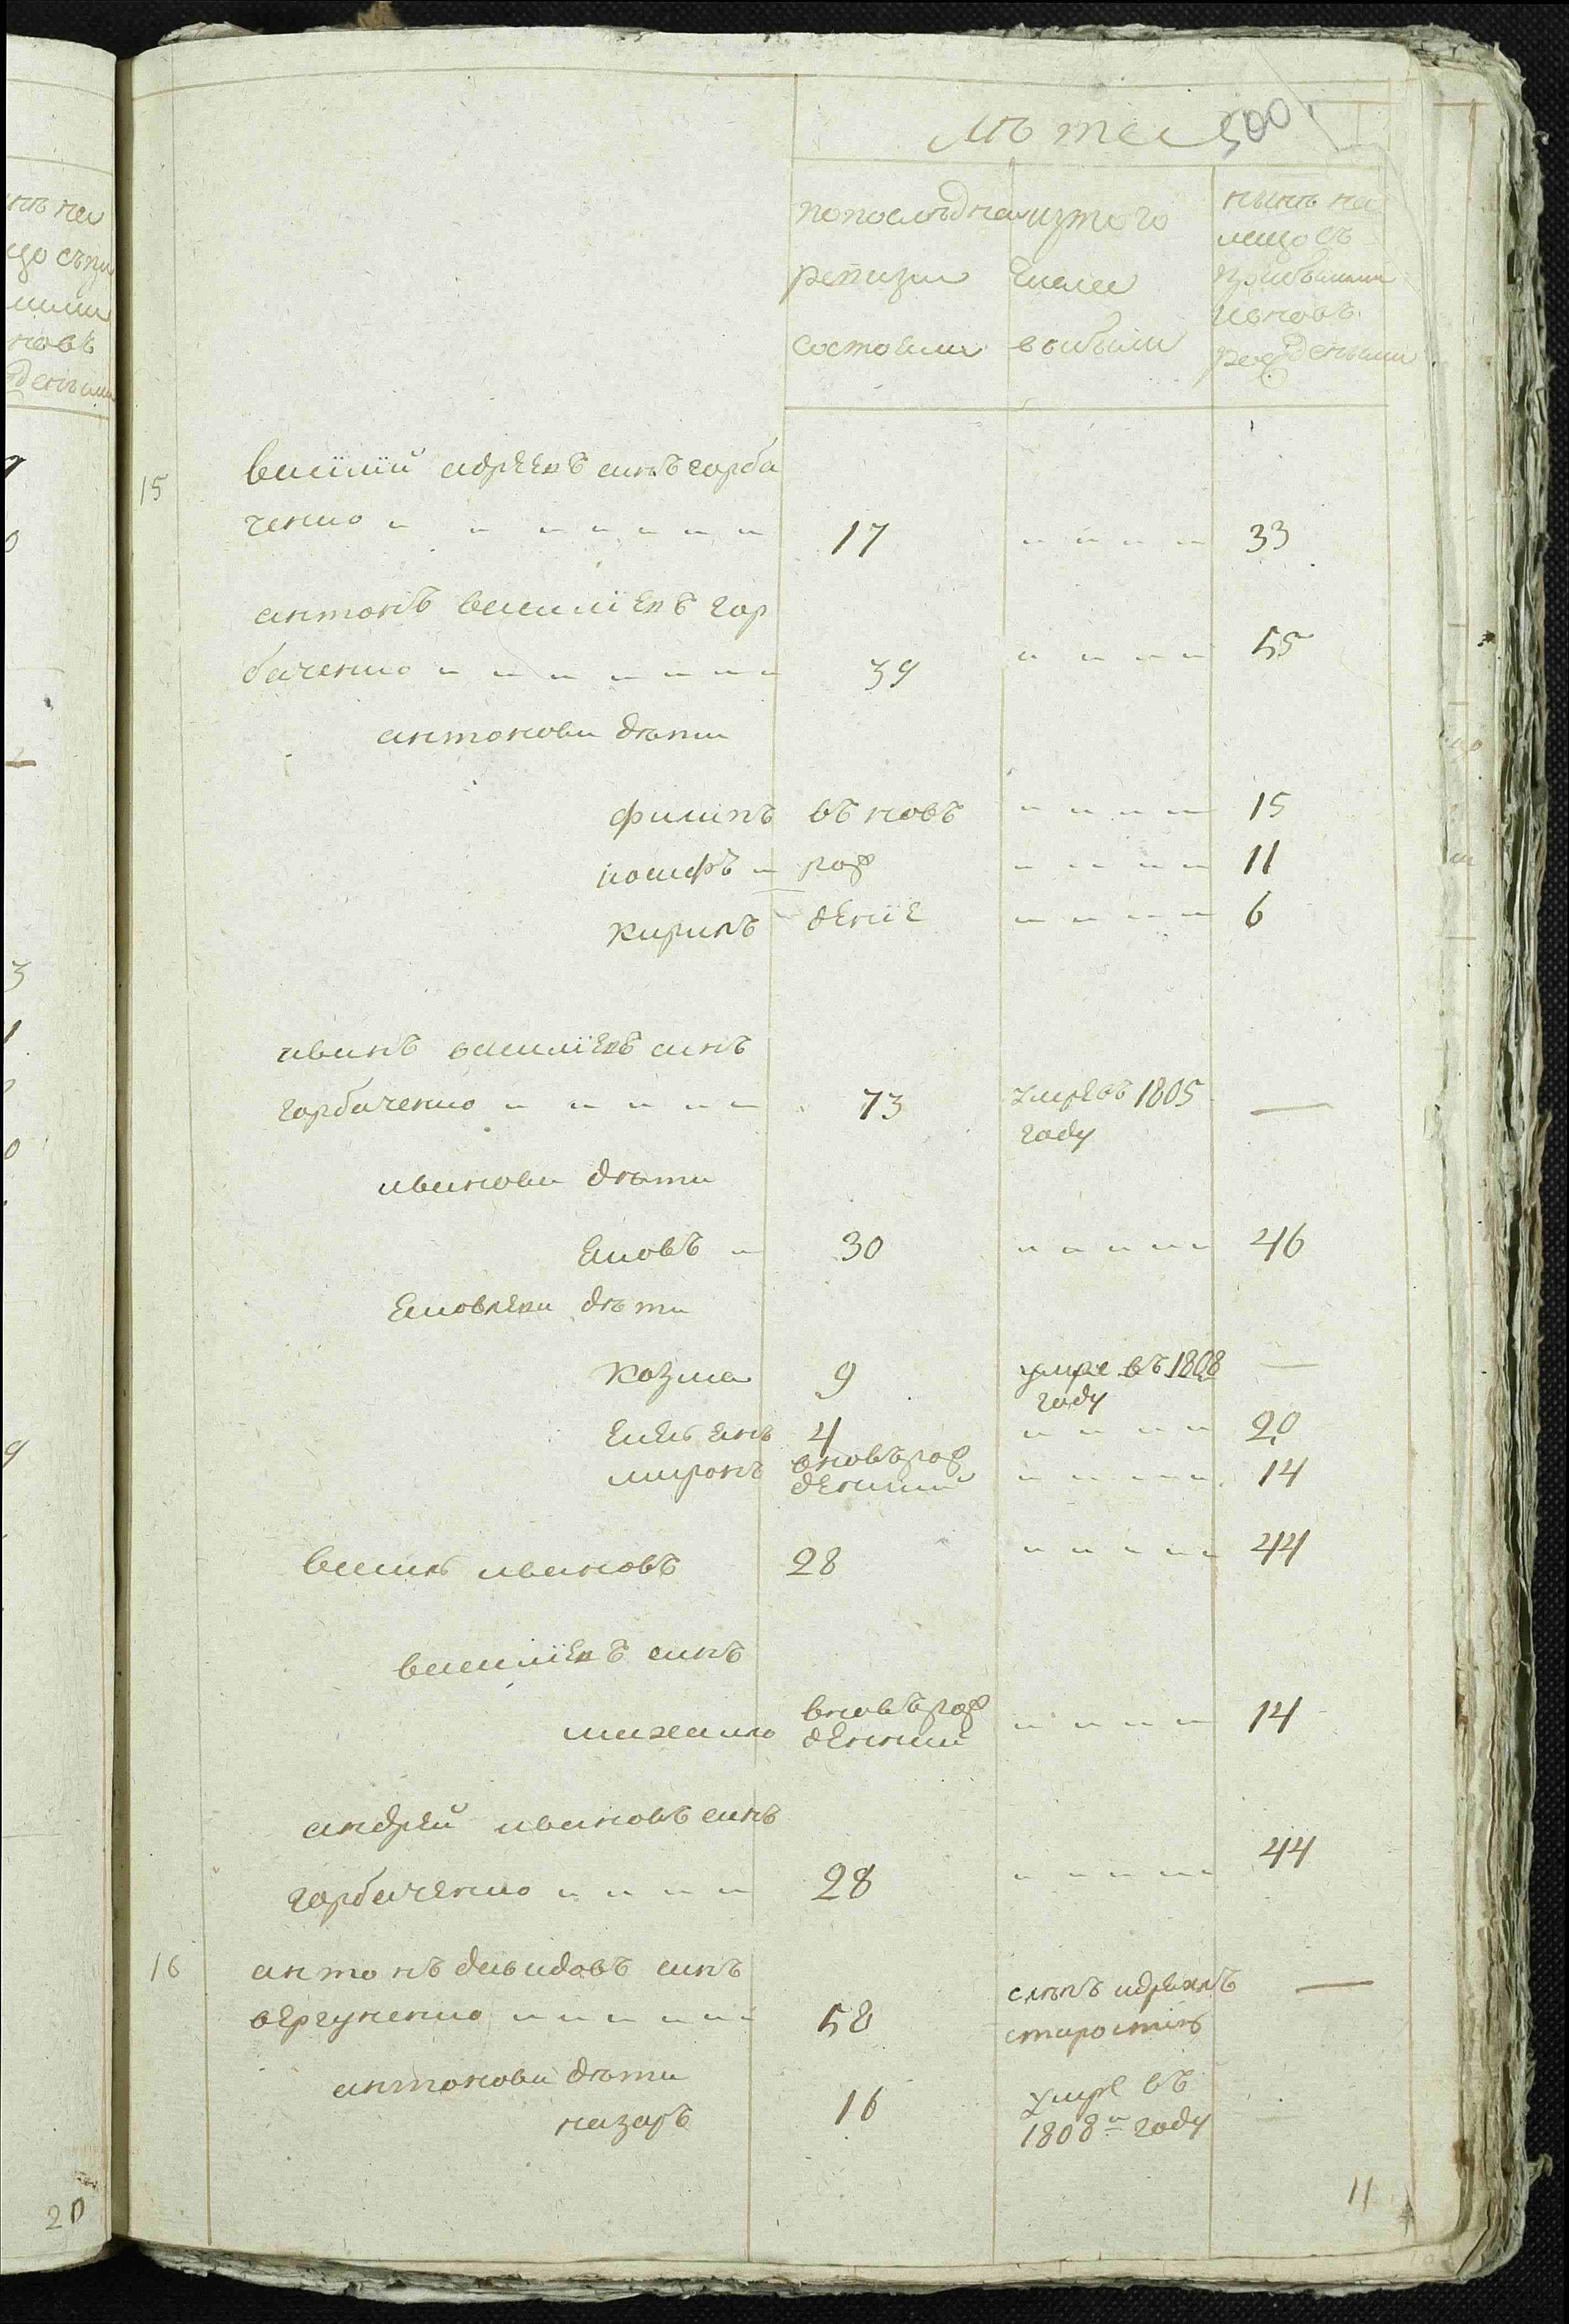 лѣта 500
по последней
ревизии
состояли
изтого
числа
выбыли
нынѣ на
лицо съ
прибылыми
и вновь
рождеными
15 василій адреевъ синъ горба
ченко 17 33
антонъ василіевъ гор
баченко 39 55
антонови дѣти
филипъ въ новъ 15
иосифъ рож 11
кирилъ деніе 6
иванъ василіевъ синъ
горбаченко 73 умре въ 1805
году —
иванови дѣти
Ековъ 30 46
Ековлеви дѣти
козма 9 умре въ 1808
году —
4 20
миронъ вновъ рож
деный 14
василь ивановъ 28 44
василіевъ синъ
михаило вновъ рож
денний 14
андрей ивановъ синъ
горбаченко 28 44
16 антонъ давидовъ синъ
вергуненко 58 слѣпъ идряхлъ
старостію —
антонови дѣти
назаръ 16 умре въ
1808м году
11
нѣ на
цо съпри
лими
новъ
деными
3
1
0
9
20